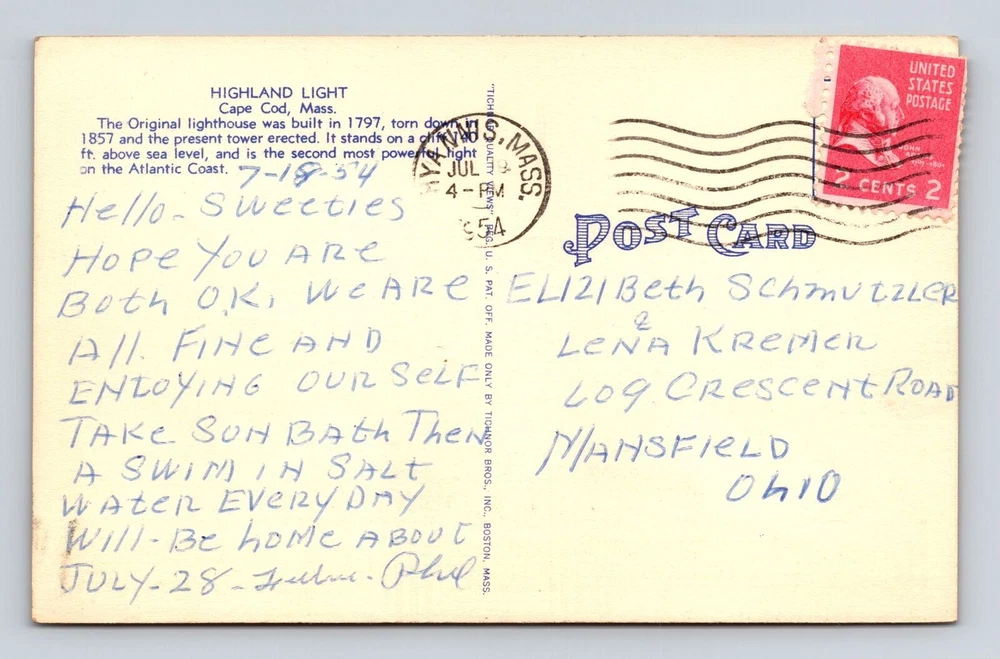 HIGHLAND LIGHT
Cape Cod, Mass.
The Original lighthouse was built in 1797, torn down in
1857 and the present tower erected. It stands on a cliff 140
ft. above sea level, and is the second most powerful light
on the Atlantic Coast.
7-18-54
Hello - Sweeties
Hope You ARE
Both O.K. We ARE
All. Fine AND
ENJOYING OUR SELF
TAKE SUN BATH Then
A SWIM IN SALT
WATER EVERY DAY
Will - Be home ABOUT
JULY - 28 - Phil
"TICHNOR QUALITY VIEWS" REG. U. S. PAT. OFF. MADE ONLY BY TICHNOR BROS., INC., BOSTON, MASS.
HYANNIS, MASS.
JUL 18
4-PM
1954
UNITED
STATES
POSTAGE
JOHN
ADAMS
2 CENTS 2
POST CARD
ELIZIBeth SchmutzLER
&
LeNA KREMER
609 CRESCENT ROAD
MANSFIELD
OhIO